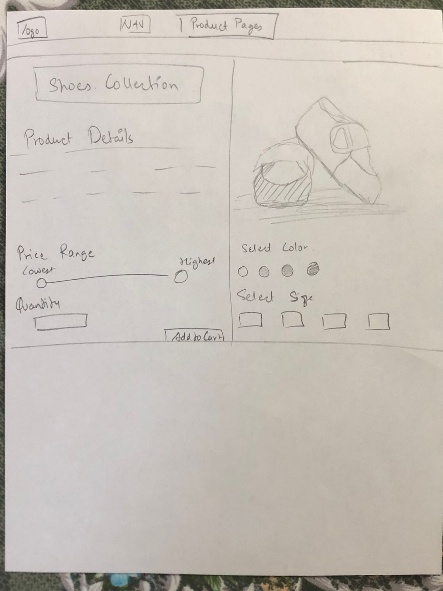 logo
NAV
Product Pages
Shoes Collection
Product Details
Price Range
Lowest
Highest
Quantity
Add to Cart
Select Color
Select Size